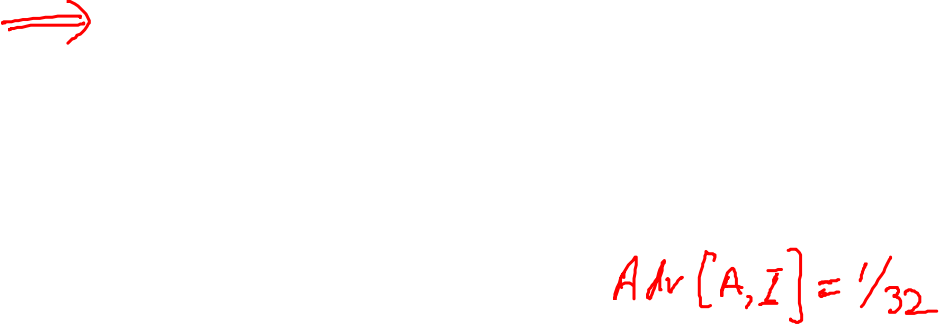 ⇒
Adv[A,I] = 1/32